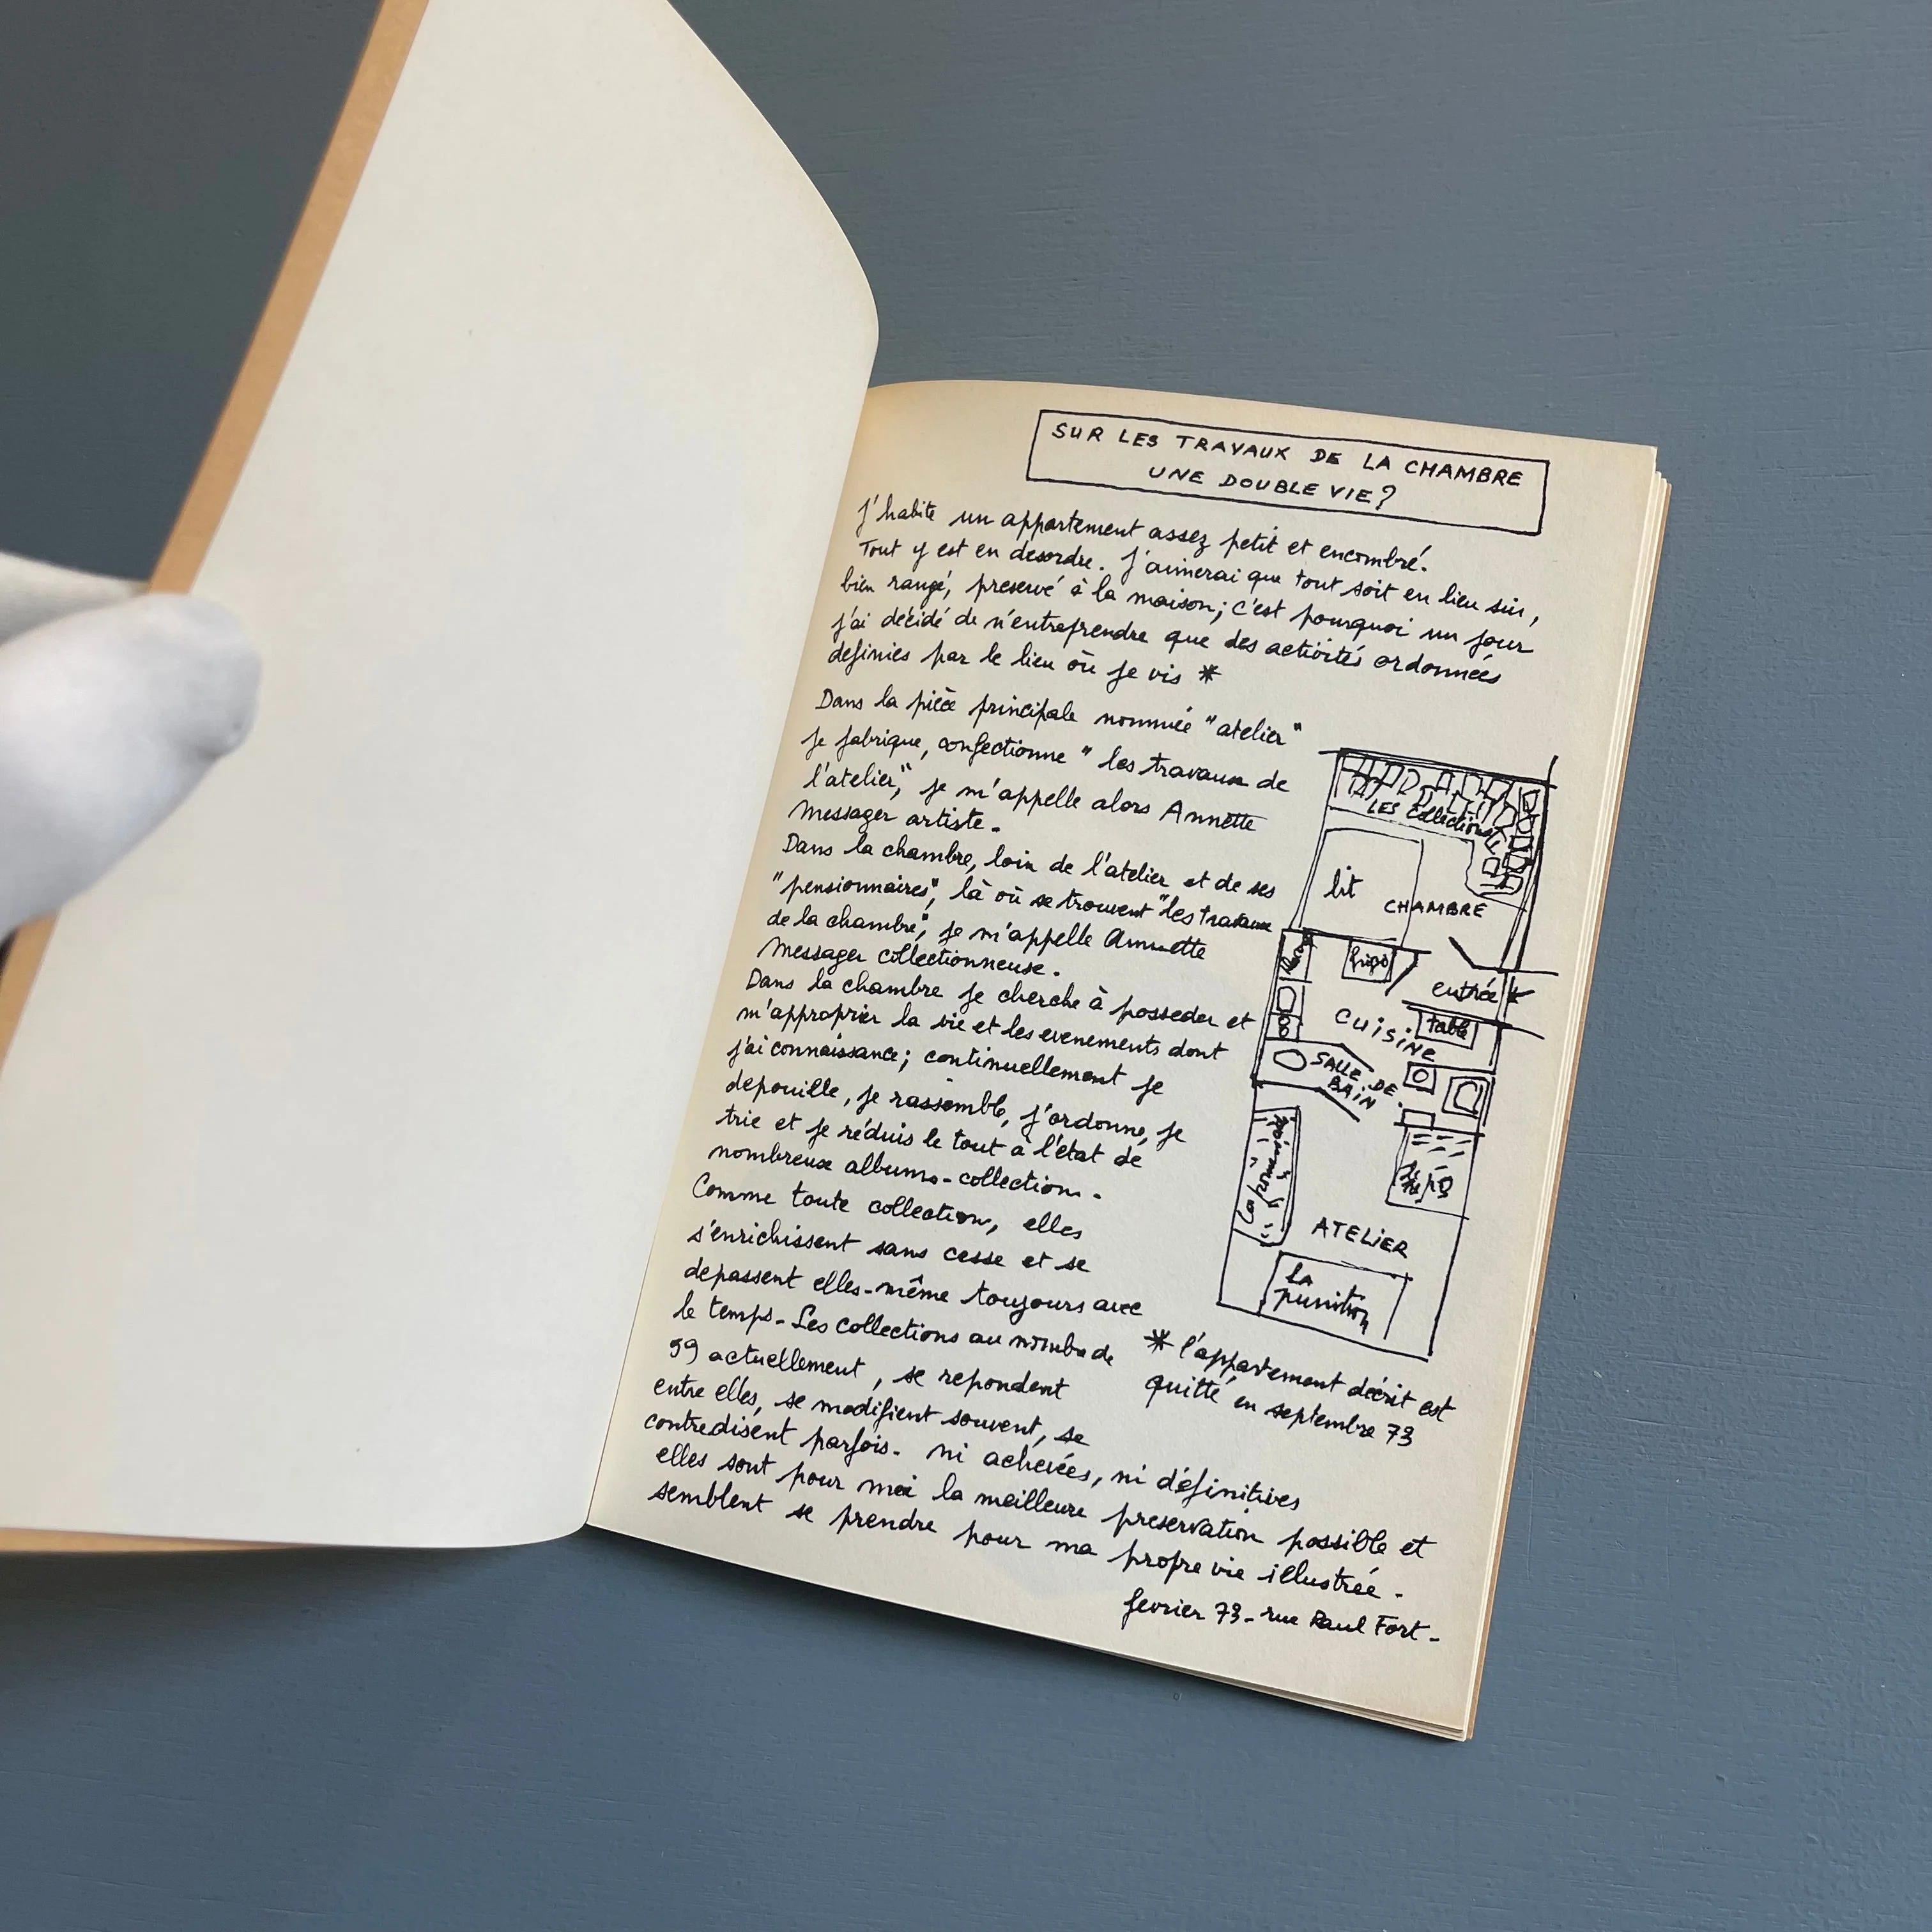 SUR LES TRAVAUX DE LA CHAMBRE
UNE DOUBLE VIE ?
j'habite un appartement assez petit et encombré.
Tout y est en desordre. j'aimerai que tout soit en lieu sûr,
bien rangé, preservé à la maison; c'est pourquoi un jour
j'ai décidé de n'entreprendre que des activités ordonnées
definies par le lieu où je vis *
Dans la pièce principale nommée "atelier"
je fabrique, confectionne "les travaux de
l'atelier", je m'appelle alors Annette
Messager artiste.
Dans la chambre, loin de l'atelier et de ses
"pensionnaires", là où se trouvent "les travaux
de la chambre", je m'appelle Annette
Messager collectionneuse.
Dans la chambre je cherche à posseder et
m'approprier la vie et les evenements dont
j'ai connaissance; continuellement je
depouille, je rassemble, j'ordonne, je
trie et je réduis le tout à l'état de
nombreux albums-collections.
Comme toute collection, elles
s'enrichissent sans cesse et se
depassent elles-même toujours avec
le temps. Les collections au nombre de
59 actuellement, se repondent
entre elles, se modifient souvent, se
contredisent parfois. ni achevées, ni définitives
elles sont pour moi la meilleure preservation possible et
semblent se prendre pour ma propre vie illustrée.
fevrier 73 - rue Paul Fort -
LES Collections
lit
CHAMBRE
frigo
entrée
CUISINE
table
SALLE DE
BAIN
la promenade
le repos
ATELIER
la
punition
* l'appartement décrit est
quitté en septembre 73